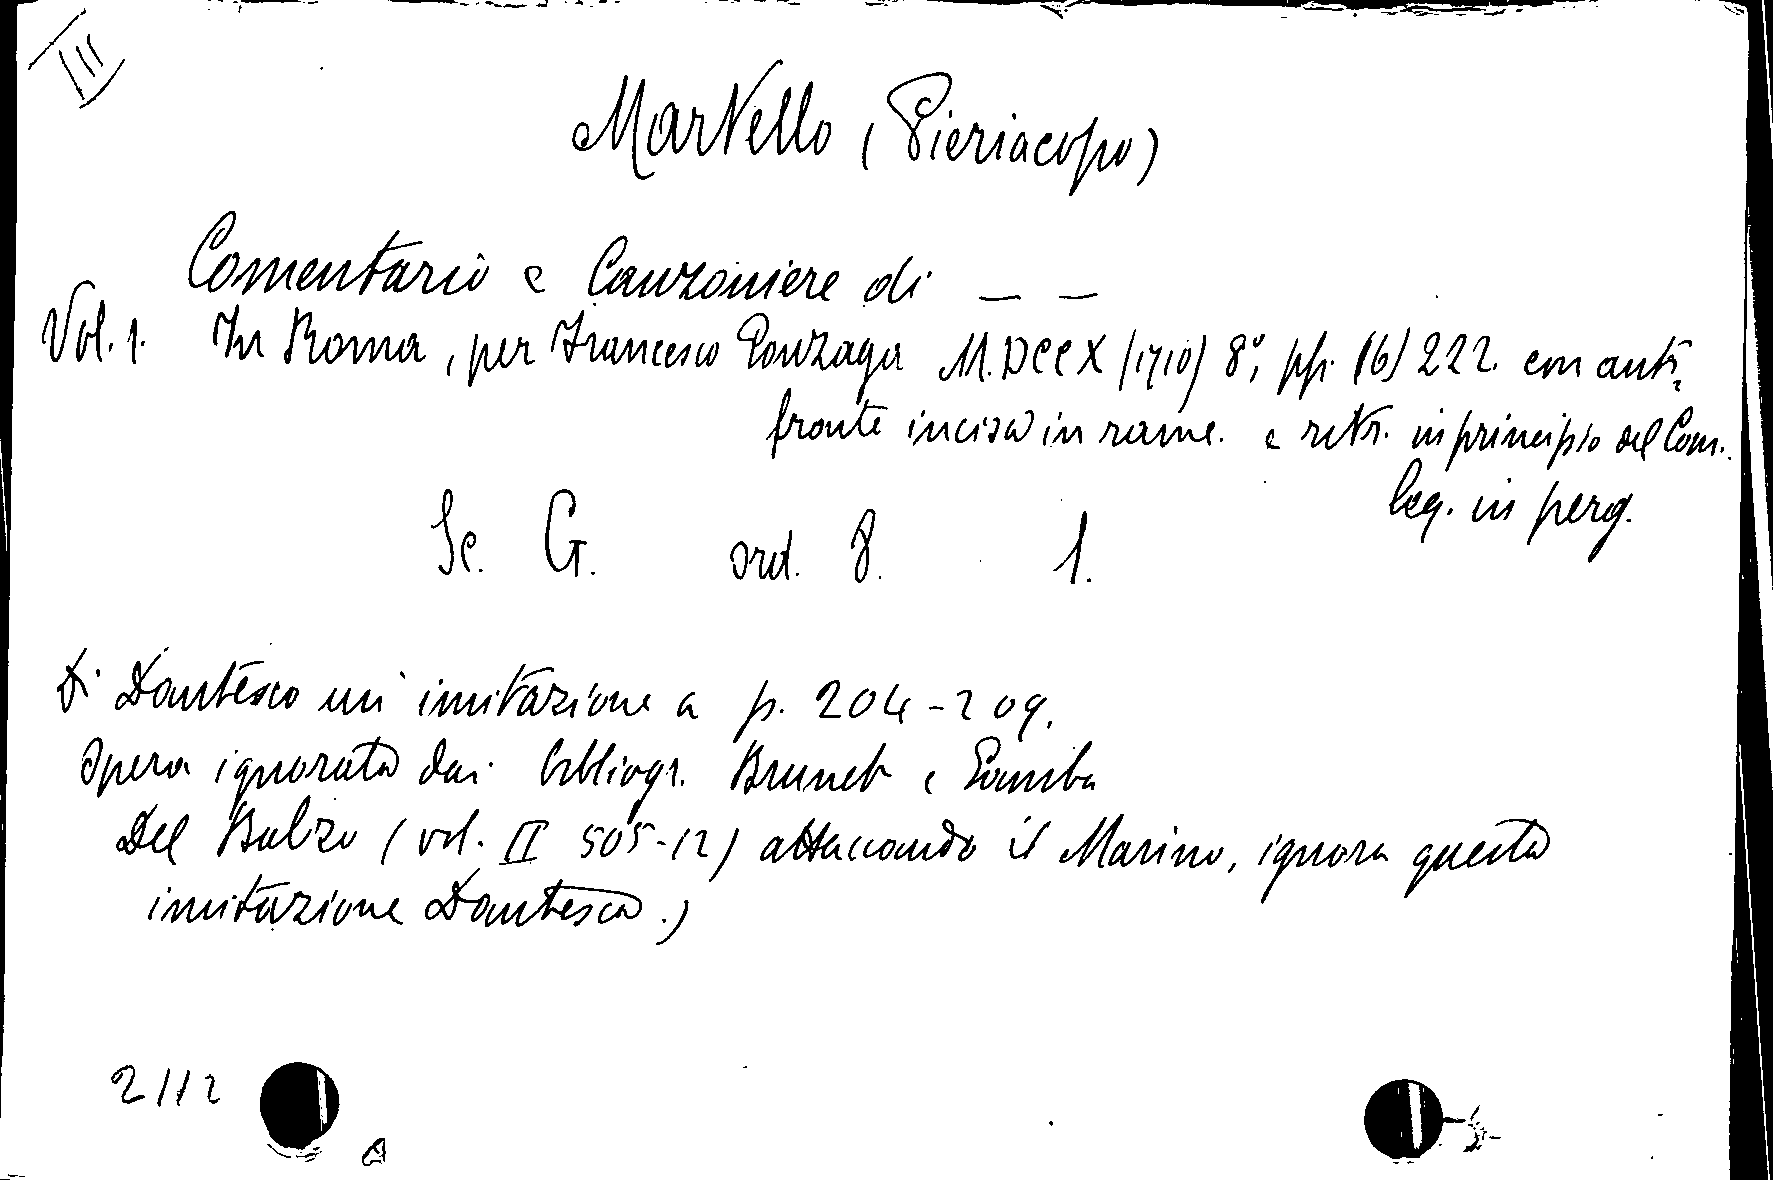 III
Martello (Pieriacopo)
Comentario e Canzoniere di — —
Vol. 1. In Roma, per Francesco Gonzaga M.DCCX (1710) 8°, pp. (6) 222. con anti-
fronte incisa in rame. e retr. in principio del Com.
leg. in perg.
Sc. G. ord. 8. 1.
Di Dantesco un' imitazione a p. 204-209.
Opera ignorata dai bibliogr. Brunet e Gamba
Del Balzo (vol. II 505-12) attaccando il Marino, ignora questa
imitazione Dantesca.)
2112